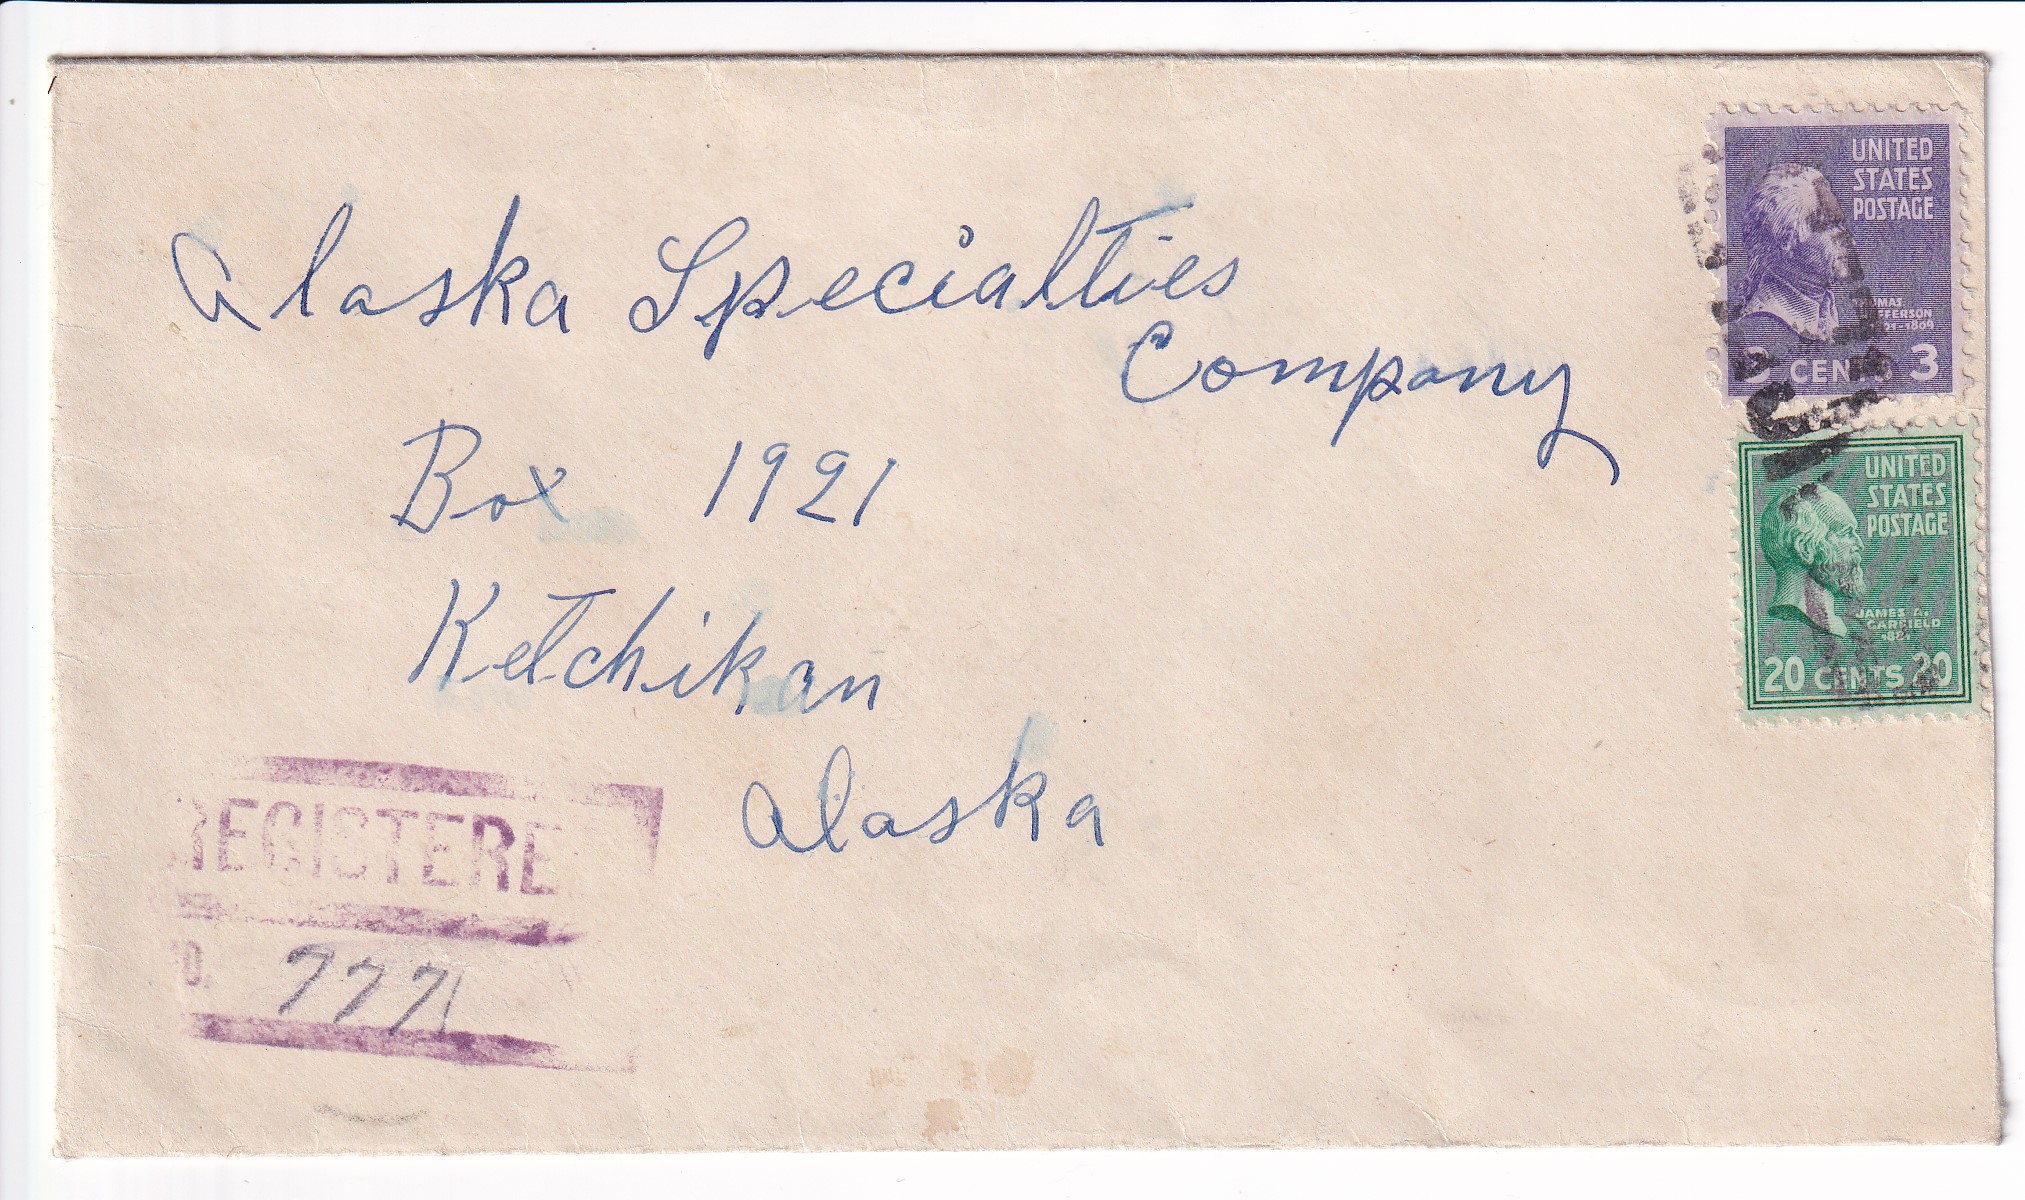 Alaska Specialties
Company
Box 1921
Ketchikan
Alaska
UNITED
STATES
POSTAGE
THOMAS
JEFFERSON
CENTS 3
UNITED
STATES
POSTAGE
JAMES A.
GARFIELD
1881
20 CENTS 20
REGISTERE
777